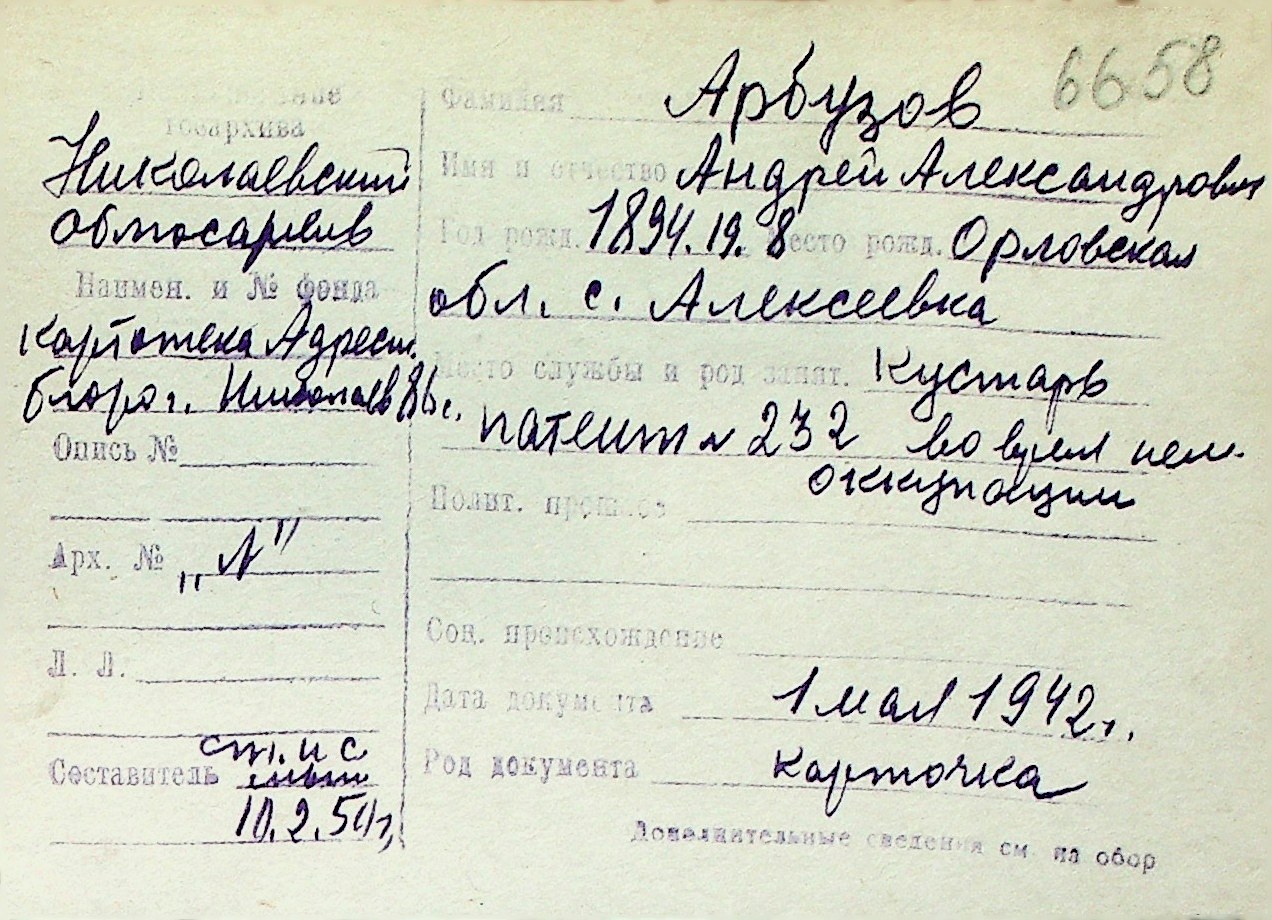 6658
Фамилия Арбузов
Имя и отчество Андрей Александрович
Год рожд. 1894.19.8 Место рожд. Орловская
обл. с. Алексеевка
Место службы и род занят. Кустарь
патент № 232 во время нем.
оккупации
Полит. прошлое
Соц. происхождение
Дата документа 1 мая 1942 г.
Род документа карточка
Дополнительные сведения см. на обор
госархива
Николаевский
облгосархив
Наимен. и № фонда
картотека Адресн.
бюро г. Николаев
Опись №
Арх. № „А"
Л. Л.
Составитель ст. н с
10.2.50 г,